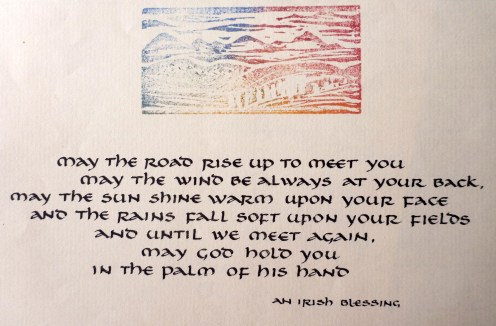 may the road rise up to meet you
may the wind be always at your back,
may the sun shine warm upon your face
and the rains fall soft upon your fields
and until we meet again,
may god hold you
in the palm of his hand
an irish blessing